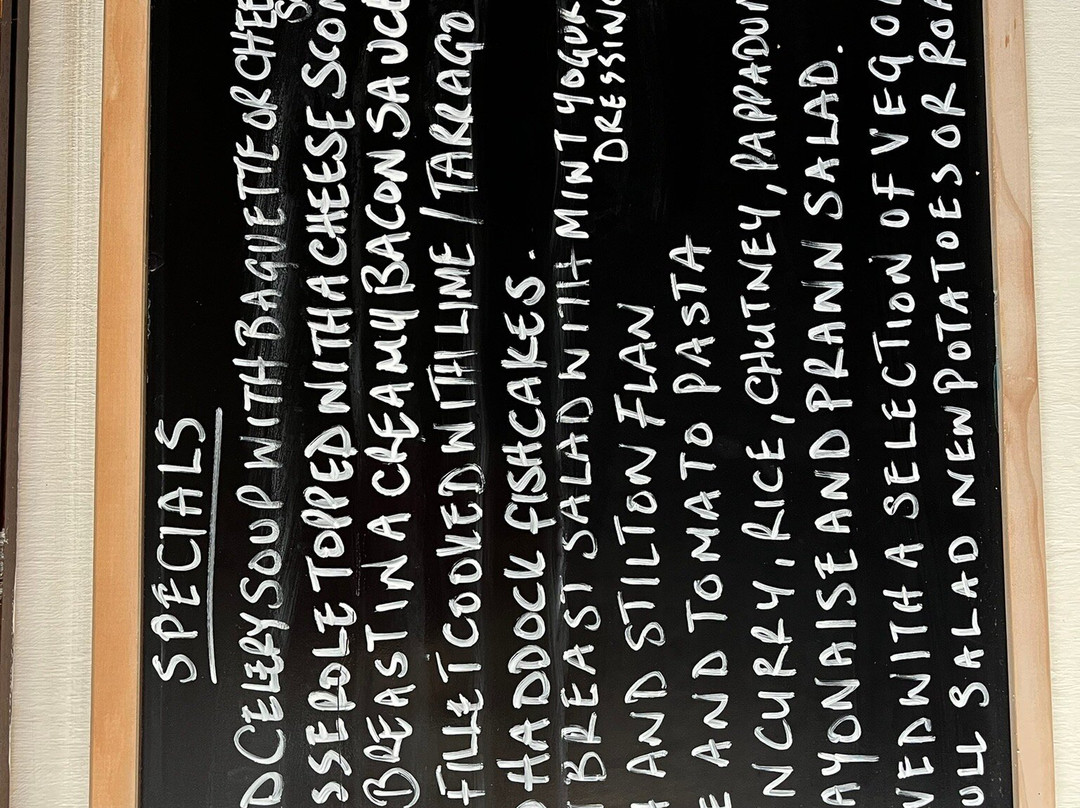 SPECIALS
D CELERY SOUP WITH BAGUETTE OR CHEE
SSEROLE TOPPED WITH A CHEESE SCON
BREAST IN A CREAMY BACON SAUCE
FILLET COOKED WITH LIME / TARRAGO
HADDOCK FISHCAKES.
BREAST SALAD WITH MINT YOGUR
DRESSING
AND STILTON FLAN
E AND TOMATO PASTA
N CURRY, RICE, CHUTNEY, PAPPADUM
AYONAISE AND PRANN SALAD.
VED WITH A SELECTION OF VEG OR
ULL SALAD NEW POTATOES OR ROA